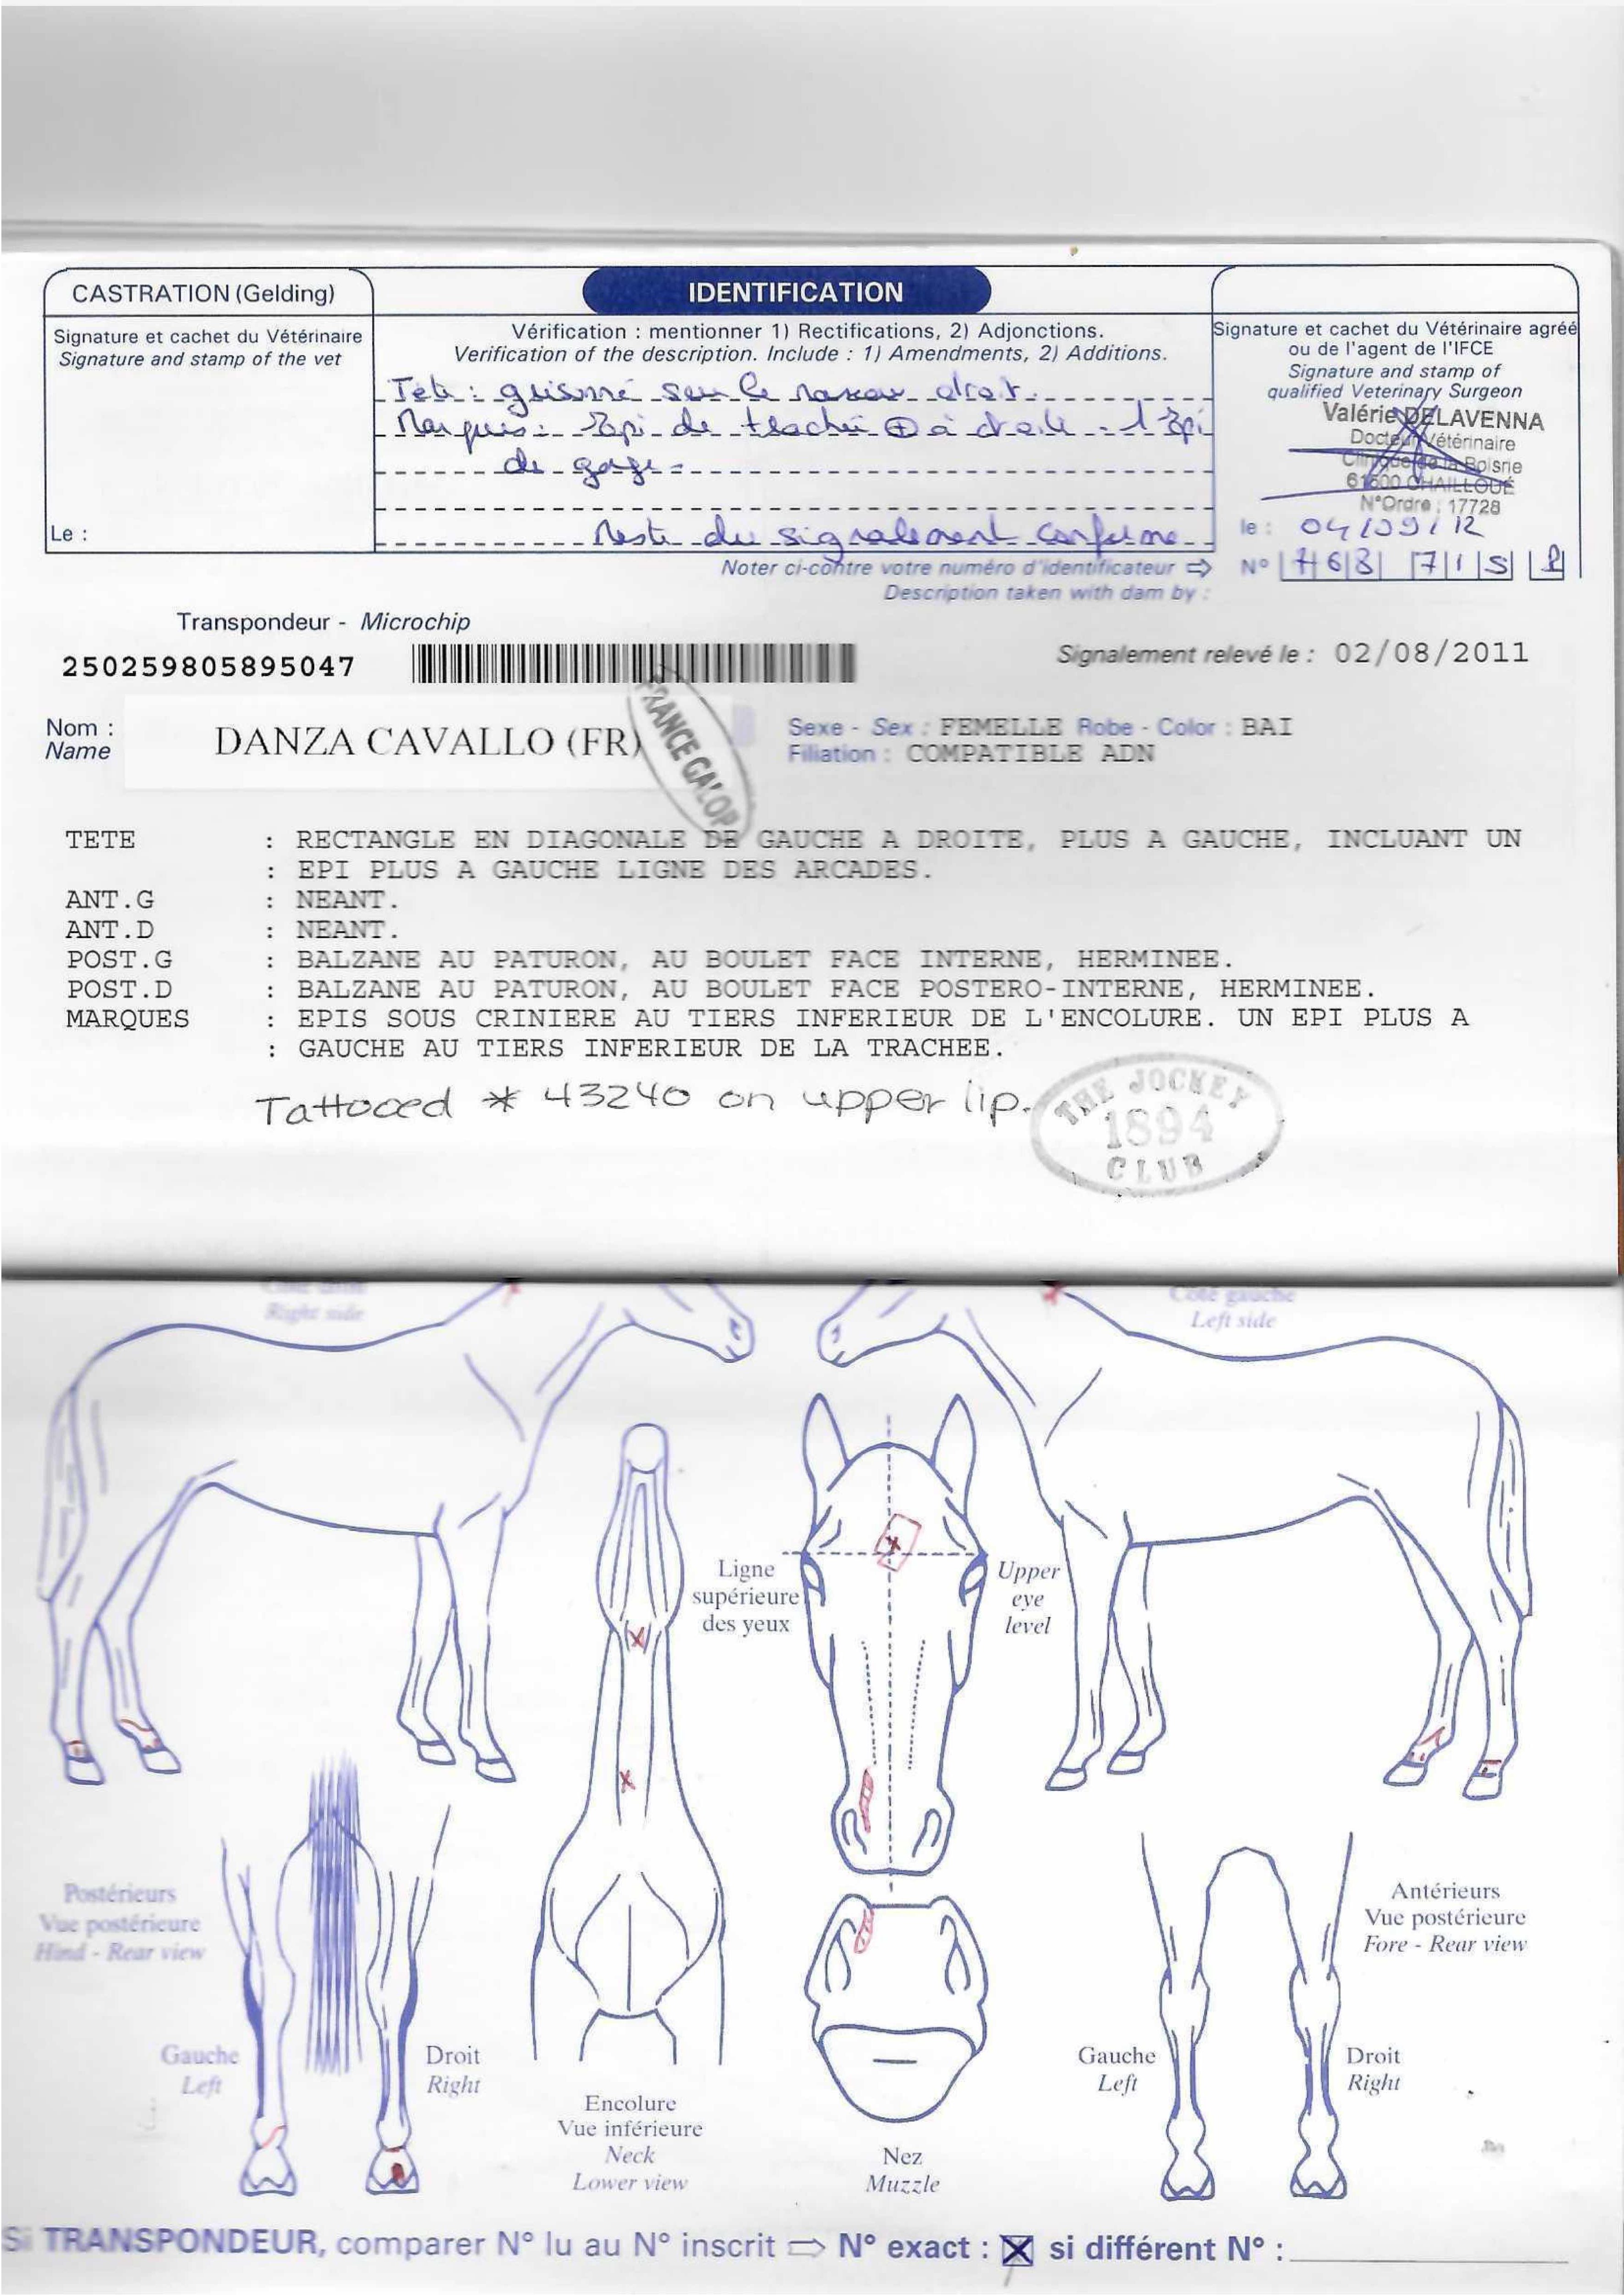 CASTRATION (Gelding)
Signature et cachet du Vétérinaire
Signature and stamp of the vet
Le :
IDENTIFICATION
Vérification : mentionner 1) Rectifications, 2) Adjonctions.
Verification of the description. Include : 1) Amendments, 2) Additions.
Tete : grisonné sur le naseau droit.
Marques : Epi de trachée ⊕ à droite . 1 Epi
de gorge.
Reste du signalement conforme
Noter ci-contre votre numéro d'identificateur ⇨
Description taken with dam by :
Signature et cachet du Vétérinaire agréé
ou de l'agent de l'IFCE
Signature and stamp of
qualified Veterinary Surgeon
Valérie DELAVENNA
Docteur Vétérinaire
Clinique de la Boisrie
61500 CHAILLOUÉ
N°Ordre : 17728
le : 04/09/12
N° 768 71S
Transpondeur - Microchip
250259805895047
Signalement relevé le : 02/08/2011
Nom :
Name
DANZA CAVALLO (FR)
FRANCE GALOP
Sexe - Sex : FEMELLE Robe - Color : BAI
Filiation : COMPATIBLE ADN
TETE : RECTANGLE EN DIAGONALE DE GAUCHE A DROITE, PLUS A GAUCHE, INCLUANT UN
: EPI PLUS A GAUCHE LIGNE DES ARCADES.
ANT.G : NEANT.
ANT.D : NEANT.
POST.G : BALZANE AU PATURON, AU BOULET FACE INTERNE, HERMINEE.
POST.D : BALZANE AU PATURON, AU BOULET FACE POSTERO-INTERNE, HERMINEE.
MARQUES : EPIS SOUS CRINIERE AU TIERS INFERIEUR DE L'ENCOLURE. UN EPI PLUS A
: GAUCHE AU TIERS INFERIEUR DE LA TRACHEE.
Tattooed * 43240 on upper lip.
THE JOCKEY
1894
CLUB
Côté droit
Right side
Côté gauche
Left side
Ligne
supérieure
des yeux
Upper
eye
level
Postérieurs
Vue postérieure
Hind - Rear view
Antérieurs
Vue postérieure
Fore - Rear view
Gauche
Left
Droit
Right
Encolure
Vue inférieure
Neck
Lower view
Nez
Muzzle
Gauche
Left
Droit
Right
Si TRANSPONDEUR, comparer N° lu au N° inscrit ⇨ N° exact : ☒ si différent N° :